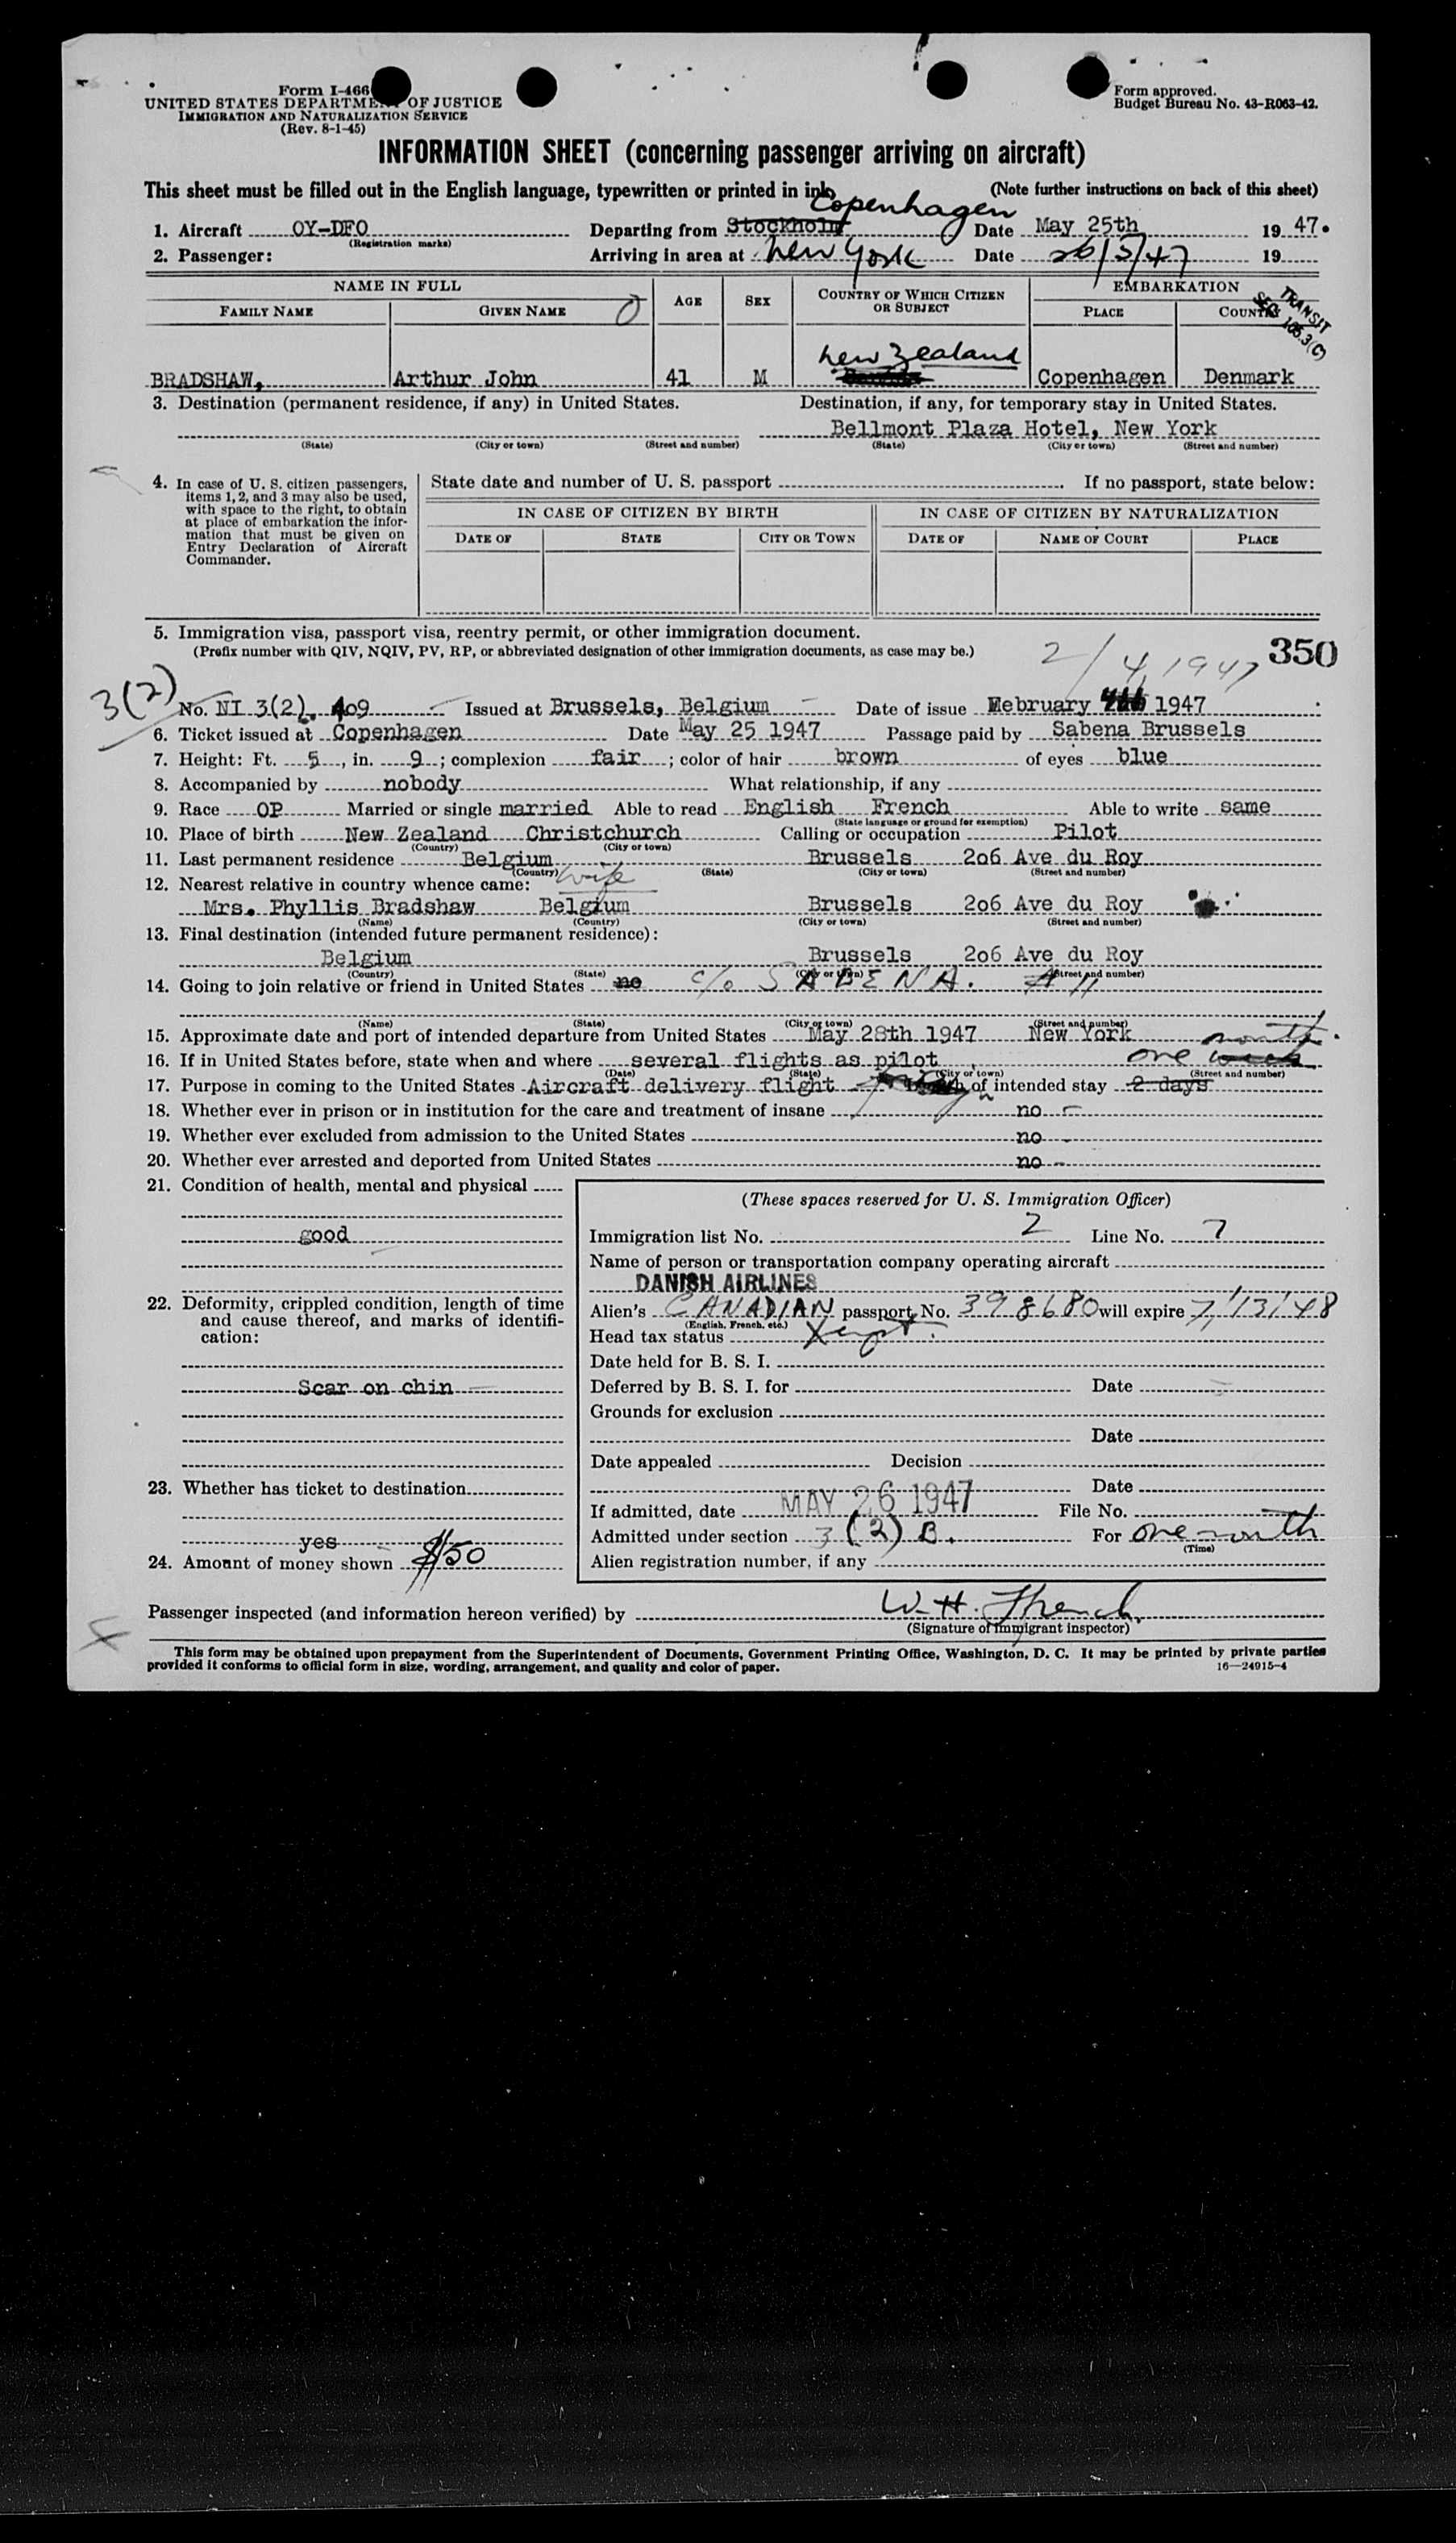 Form I-466
UNITED STATES DEPARTMENT OF JUSTICE
IMMIGRATION AND NATURALIZATION SERVICE
(Rev. 8-1-45)
Form approved.
Budget Bureau No. 43-R063-42.
INFORMATION SHEET (concerning passenger arriving on aircraft)
This sheet must be filled out in the English language, typewritten or printed in ink. (Note further instructions on back of this sheet)
Copenhagen
1. Aircraft OY-DFO Departing from Stockholm Date May 25th 1947.
(Registration marks)
2. Passenger: Arriving in area at New York Date 26/5/47 19
NAME IN FULL AGE SEX COUNTRY OF WHICH CITIZEN OR SUBJECT EMBARKATION
FAMILY NAME GIVEN NAME PLACE COUNTRY
TRANSIT
SEC. 105.3(C)
New Zealand
BRADSHAW, Arthur John 41 M Copenhagen Denmark
3. Destination (permanent residence, if any) in United States. Destination, if any, for temporary stay in United States.
Bellmont Plaza Hotel, New York
(State) (City or town) (Street and number) (State) (City or town) (Street and number)
4. In case of U. S. citizen passengers, items 1, 2, and 3 may also be used, with space to the right, to obtain at place of embarkation the information that must be given on Entry Declaration of Aircraft Commander.
State date and number of U. S. passport If no passport, state below:
IN CASE OF CITIZEN BY BIRTH IN CASE OF CITIZEN BY NATURALIZATION
DATE OF STATE CITY OR TOWN DATE OF NAME OF COURT PLACE
5. Immigration visa, passport visa, reentry permit, or other immigration document.
(Prefix number with QIV, NQIV, PV, RP, or abbreviated designation of other immigration documents, as case may be.)
2/4/1947 350
3(2)
No. NI 3(2). 409 Issued at Brussels, Belgium Date of issue February 4th 1947
6. Ticket issued at Copenhagen Date May 25 1947 Passage paid by Sabena Brussels
7. Height: Ft. 5, in. 9; complexion fair; color of hair brown of eyes blue
8. Accompanied by nobody What relationship, if any
9. Race OP Married or single married Able to read English French Able to write same
(State language or ground for exemption)
10. Place of birth New Zealand Christchurch Calling or occupation Pilot
(Country) (City or town)
11. Last permanent residence Belgium Brussels 2o6 Ave du Roy
(Country) (State) (City or town) (Street and number)
12. Nearest relative in country whence came: wife
Mrs. Phyllis Bradshaw Belgium Brussels 2o6 Ave du Roy
(Name) (Country) (City or town) (Street and number)
13. Final destination (intended future permanent residence):
Belgium Brussels 2o6 Ave du Roy
(Country) (State) (City or town) (Street and number)
14. Going to join relative or friend in United States no c/o SABENA.
(Name) (State) (City or town) (Street and number)
15. Approximate date and port of intended departure from United States May 28th 1947 New York
month.
16. If in United States before, state when and where several flights as pilot one week
(Date) (State) (City or town) (Street and number)
17. Purpose in coming to the United States Aircraft delivery flight Length of intended stay 2 days
18. Whether ever in prison or in institution for the care and treatment of insane no
19. Whether ever excluded from admission to the United States no
20. Whether ever arrested and deported from United States no
21. Condition of health, mental and physical
good
22. Deformity, crippled condition, length of time and cause thereof, and marks of identification:
Scar on chin
23. Whether has ticket to destination
yes
24. Amount of money shown $150
(These spaces reserved for U. S. Immigration Officer)
Immigration list No. 2 Line No. 7
Name of person or transportation company operating aircraft
DANISH AIRLINES
Alien's CANADIAN passport No. 398680 will expire 7/13/48
(English, French, etc.)
Head tax status Xempt.
Date held for B. S. I.
Deferred by B. S. I. for Date
Grounds for exclusion
Date
Date appealed Decision
Date
If admitted, date MAY 26 1947 File No.
Admitted under section 3(2) B. For one month
(Time)
Alien registration number, if any
Passenger inspected (and information hereon verified) by W. H. French.
(Signature of immigrant inspector)
This form may be obtained upon prepayment from the Superintendent of Documents, Government Printing Office, Washington, D. C. It may be printed by private parties
provided it conforms to official form in size, wording, arrangement, and quality and color of paper. 16—24915-4